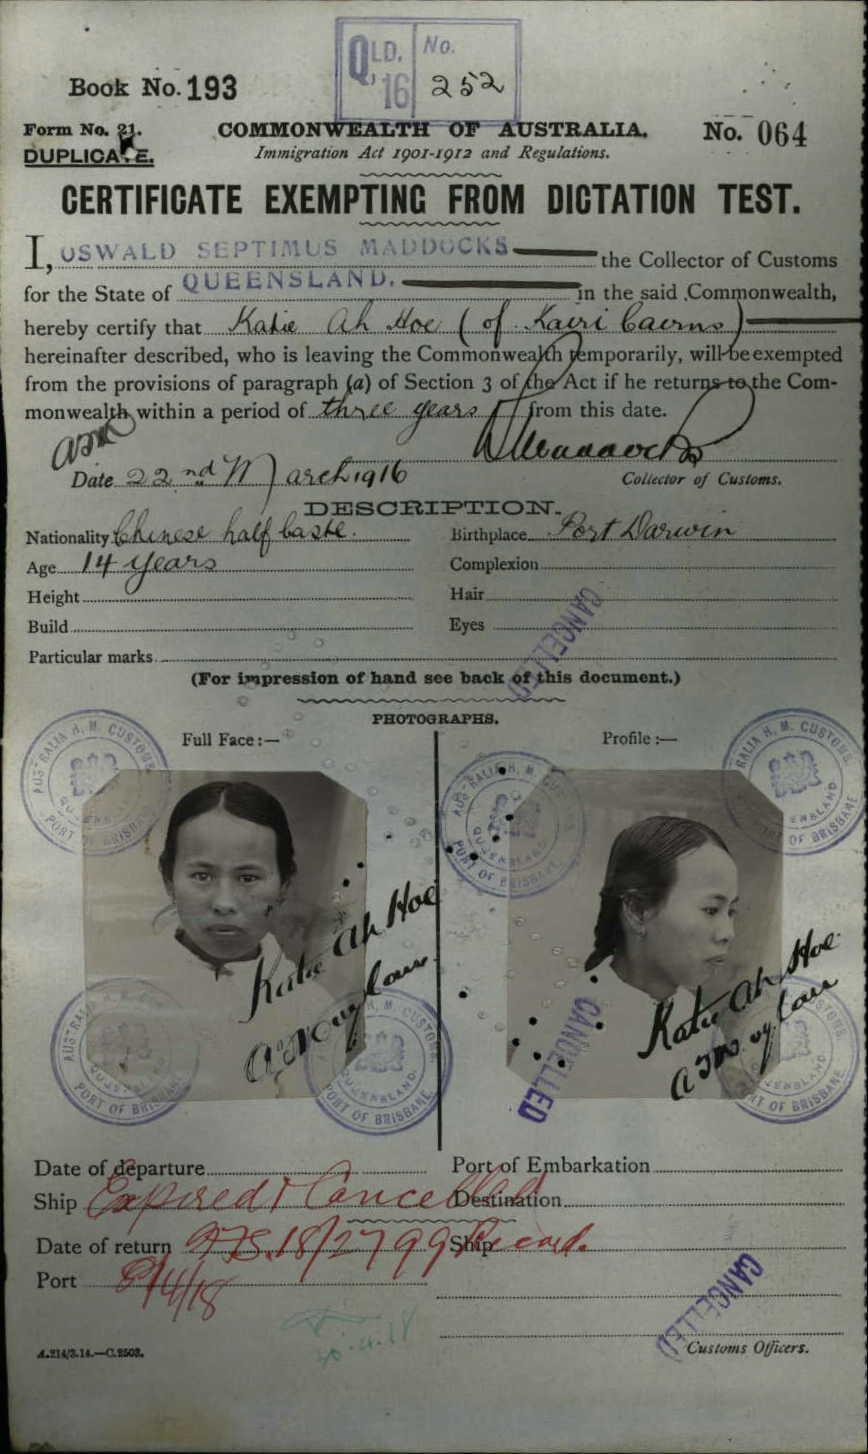 QLD. No.
'16 252
Book No. 193
Form No. 21. COMMONWEALTH OF AUSTRALIA. No. 064
DUPLICATE. Immigration Act 1901-1912 and Regulations.
CERTIFICATE EXEMPTING FROM DICTATION TEST.
I, OSWALD SEPTIMUS MADDOCKS the Collector of Customs
for the State of QUEENSLAND. in the said Commonwealth,
hereby certify that Katie Ah Hoe (of Kairi Cairns)
hereinafter described, who is leaving the Commonwealth temporarily, will be exempted
from the provisions of paragraph (a) of Section 3 of the Act if he returns to the Com-
monwealth within a period of three years from this date.
Date 22nd March 1916 Collector of Customs.
DESCRIPTION.
Nationality Chinese half caste. Birthplace Port Darwin
Age 14 years Complexion
Height Hair
Build Eyes
Particular marks
CANCELLED
(For impression of hand see back of this document.)
PHOTOGRAPHS.
Full Face:— Profile:—
AUSTRALIA H. M. CUSTOMS QUEENSLAND PORT OF BRISBANE
AUSTRALIA H. M. CUSTOMS QUEENSLAND PORT OF BRISBANE
Katie Ah Hoe
Katie Ah Hoe
CANCELLED
Date of departure Port of Embarkation
Ship Expired & Cancelled Destination
Date of return 18/2799 Records Ship
Port 8/4/18
CANCELLED
A.214/3.14.—C.2503. Customs Officers.